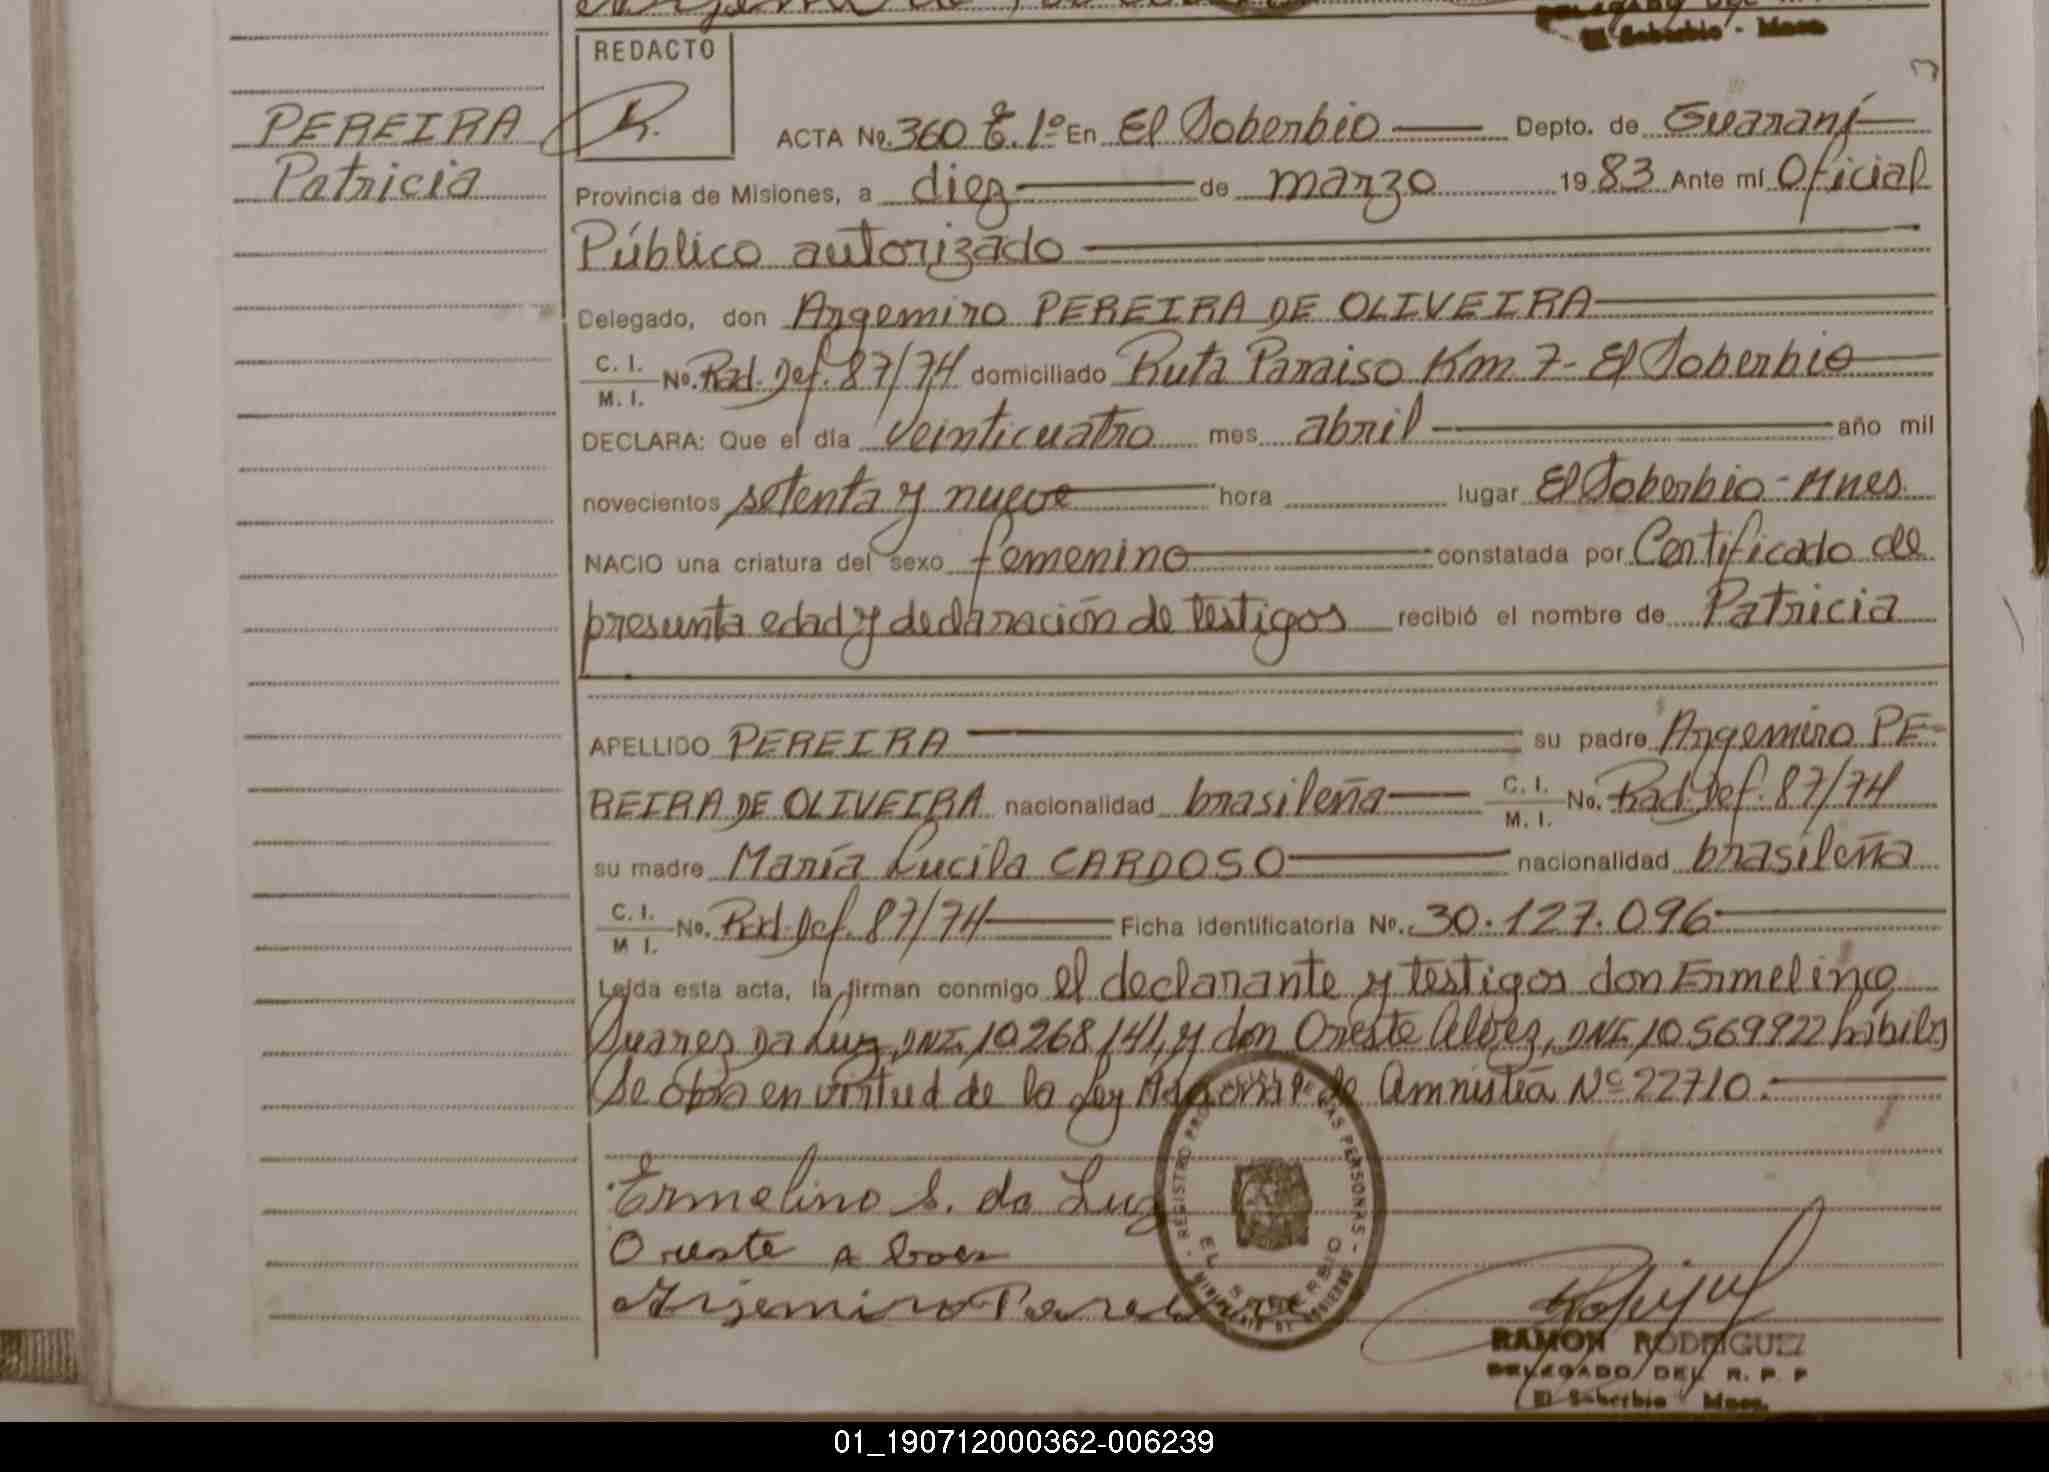 El Soberbio - Mnes.
REDACTO
PEREIRA
Patricia
ACTA No. 360 T. 1º En El Soberbio Depto. de Guaraní
Provincia de Misiones, a diez de marzo 1983 Ante mí Oficial
Público autorizado
Delegado, don Argemiro PEREIRA DE OLIVEIRA
C. I.
M. I.
No. Rad. Def. 87/74 domiciliado Ruta Paraiso Km 7 - El Soberbio
DECLARA: Que el día veinticuatro mes abril año mil
novecientos setenta y nueve hora lugar El Soberbio - Mnes.
NACIO una criatura del sexo femenino constatada por Certificado de
presunta edad y declaración de testigos recibió el nombre de Patricia
APELLIDO PEREIRA su padre Argemiro PE-
REIRA DE OLIVEIRA nacionalidad brasileña C. I. M. I. No. Rad. Def. 87/74
su madre María Lucila CARDOSO nacionalidad brasileña
C. I.
M I.
No. Rad. Def. 87/74 Ficha identificatoria No. 30.127.096
Leída esta acta, la firman conmigo el declarante y testigos don Ermelino
Suarez Da Luz, DNI. 10268141, y don Oreste Alvez, DNI. 10569922 hábiles
Se obra en virtud de la Ley Nacional de Amnistía Nº 22710.
Ermelino S. da Luz
Oreste
Argemiro
REGISTRO PROVINCIAL DE LAS PERSONAS
EL SOBERBIO
MINISTERIO DE GOBIERNO
RAMON RODRIGUEZ
DELEGADO DEL R. P. P
El Soberbio Mnes.
01_190712000362-006239